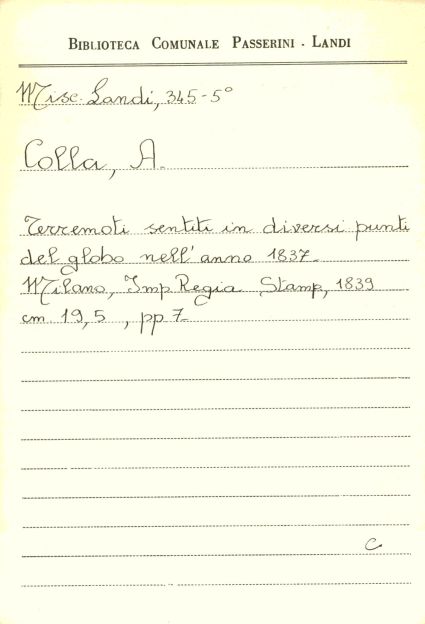 BIBLIOTECA COMUNALE PASSERINI - LANDI
Misc. Landi, 345-5°
Colla, A.
Terremoti sentiti in diversi punti
del globo nell'anno 1837.
Milano, Imp. Regia Stamp., 1839
cm. 19,5 , pp 7.
C